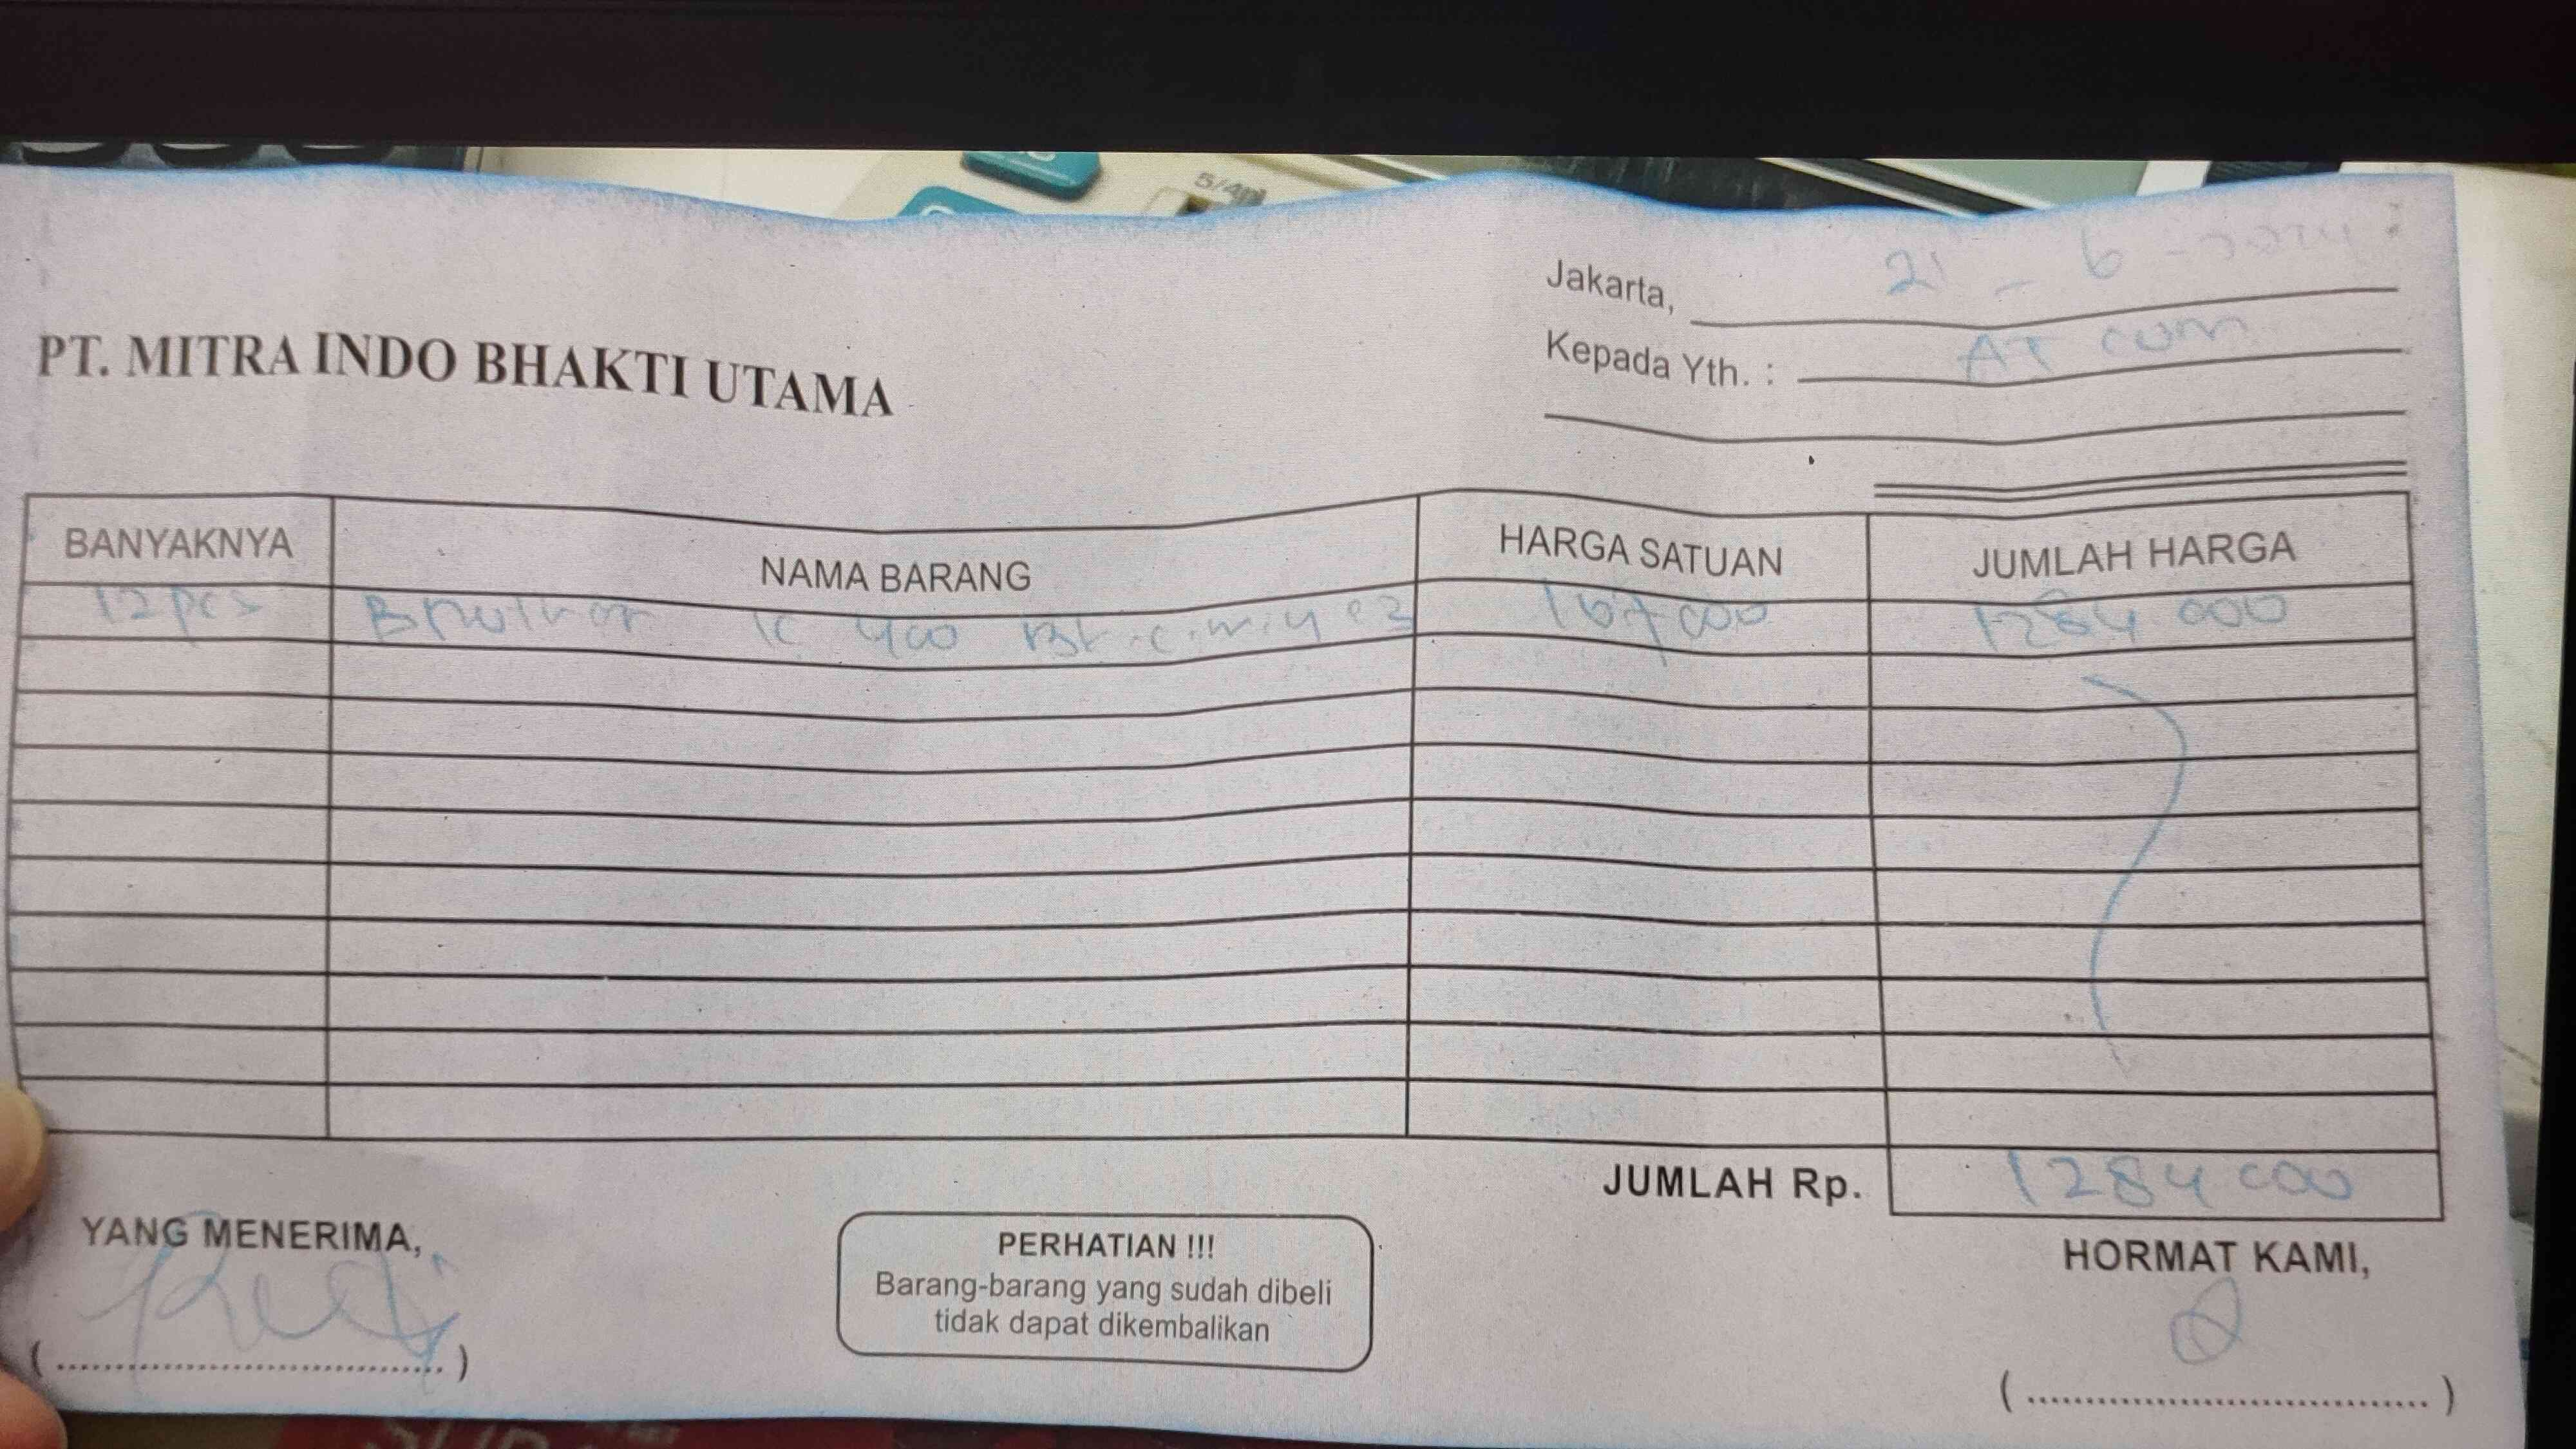 5/4
Jakarta, 21 - 6 -
Kepada Yth. : AT com
PT. MITRA INDO BHAKTI UTAMA
BANYAKNYA NAMA BARANG HARGA SATUAN JUMLAH HARGA
12 pcs 107 000 1284 000
JUMLAH Rp. 1284 000
YANG MENERIMA,
PERHATIAN !!!
Barang-barang yang sudah dibeli
tidak dapat dikembalikan
HORMAT KAMI,